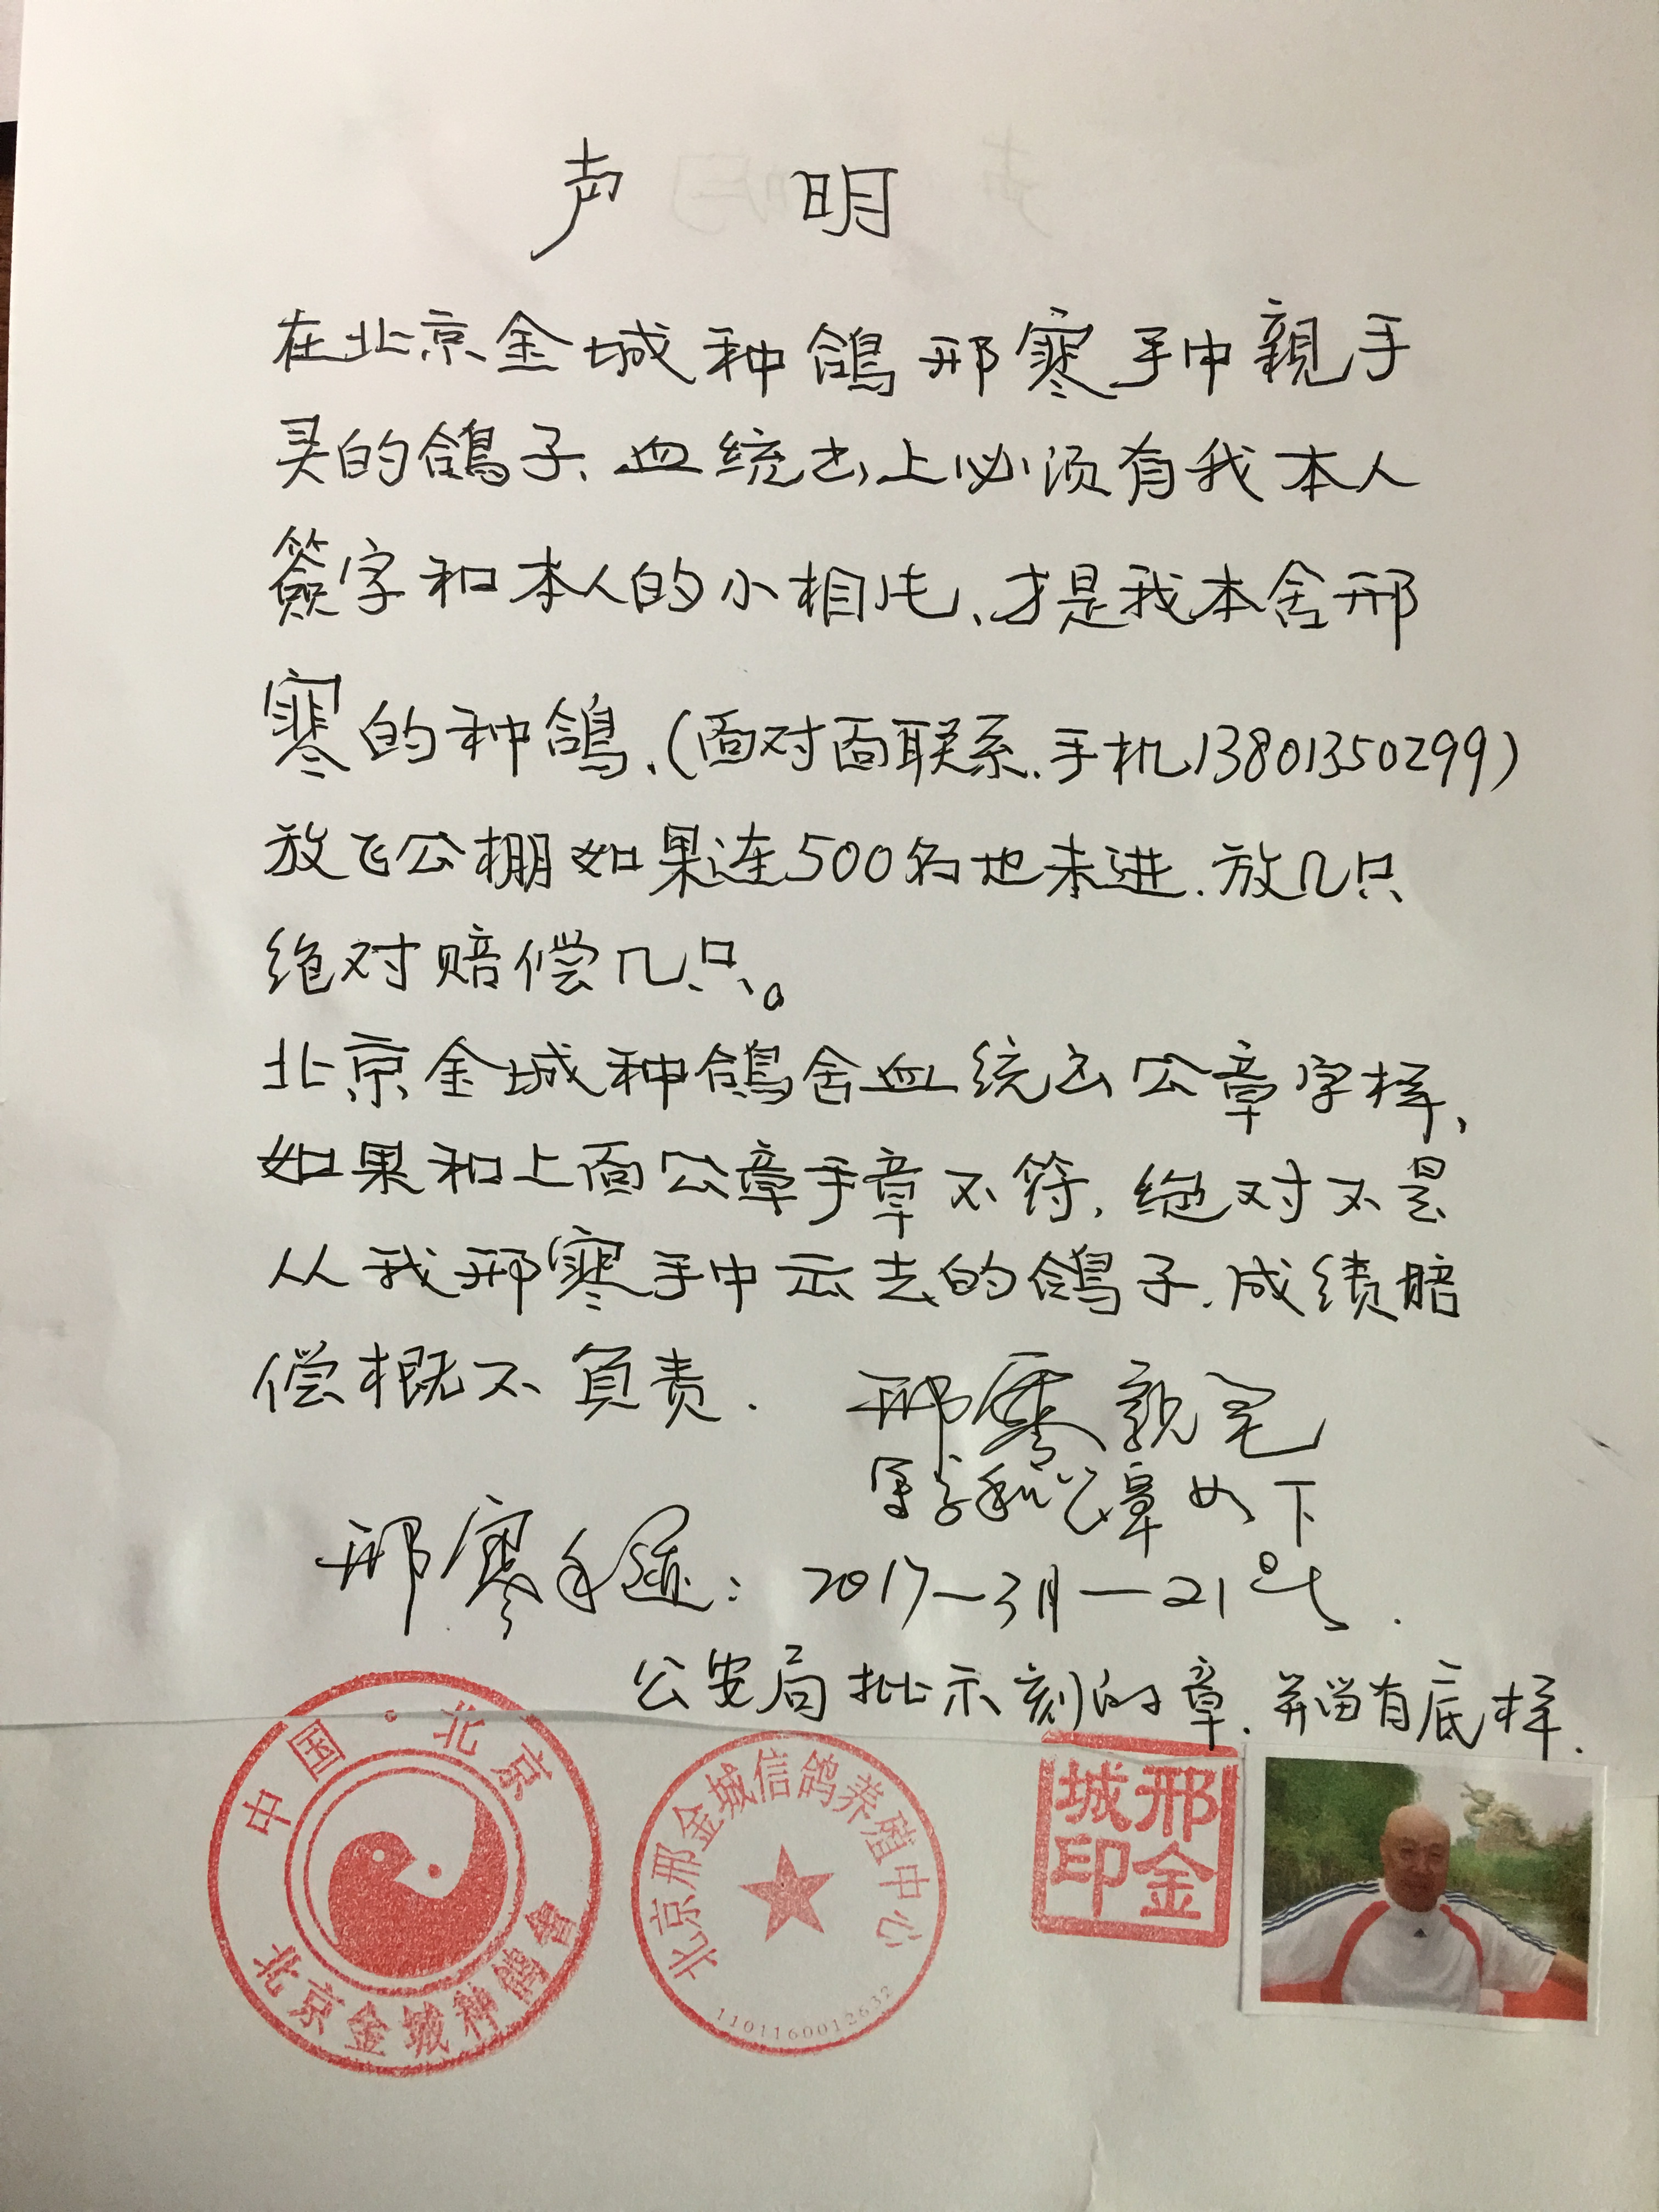 声 明
在北京金城种鸽邢寒手中親手
买的鸽子、血统书上必须有我本人
簽字和本人的小相片、才是我本舍邢
寒的种鸽、(面对面联系.手机13801350299)
放飞公棚如果连500名也未进.放几只
绝对赔偿几只。
北京金城种鸽舍血统书公章字样、
如果和上面公章手章不符.绝对不是
从我邢寒手中云去的鸽子.成绩赔
偿概不负责.
邢寒親笔
签字和公章如下
邢寒 : 2017-3月-21号.
公安局批示刻的章.并留有底样.
中国·北京
北京金城种鸽舍
北京邢金城信鸽养殖中心
1101160012632
邢金
城印